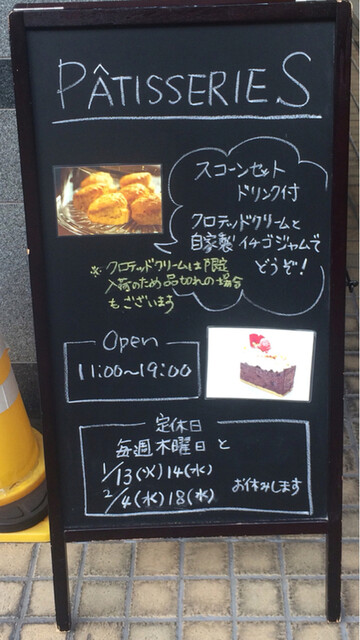 PÂTISSERIES
スコーンセット
ドリンク付
クロテッドクリームと
自家製イチゴジャムで
どうぞ!
※クロテッドクリームは限定
入荷のため品切れの場合
もございます
Open
11:00～19:00
定休日
毎週木曜日と
1/13(火)14(水)
2/4(水)18(水)
お休みします